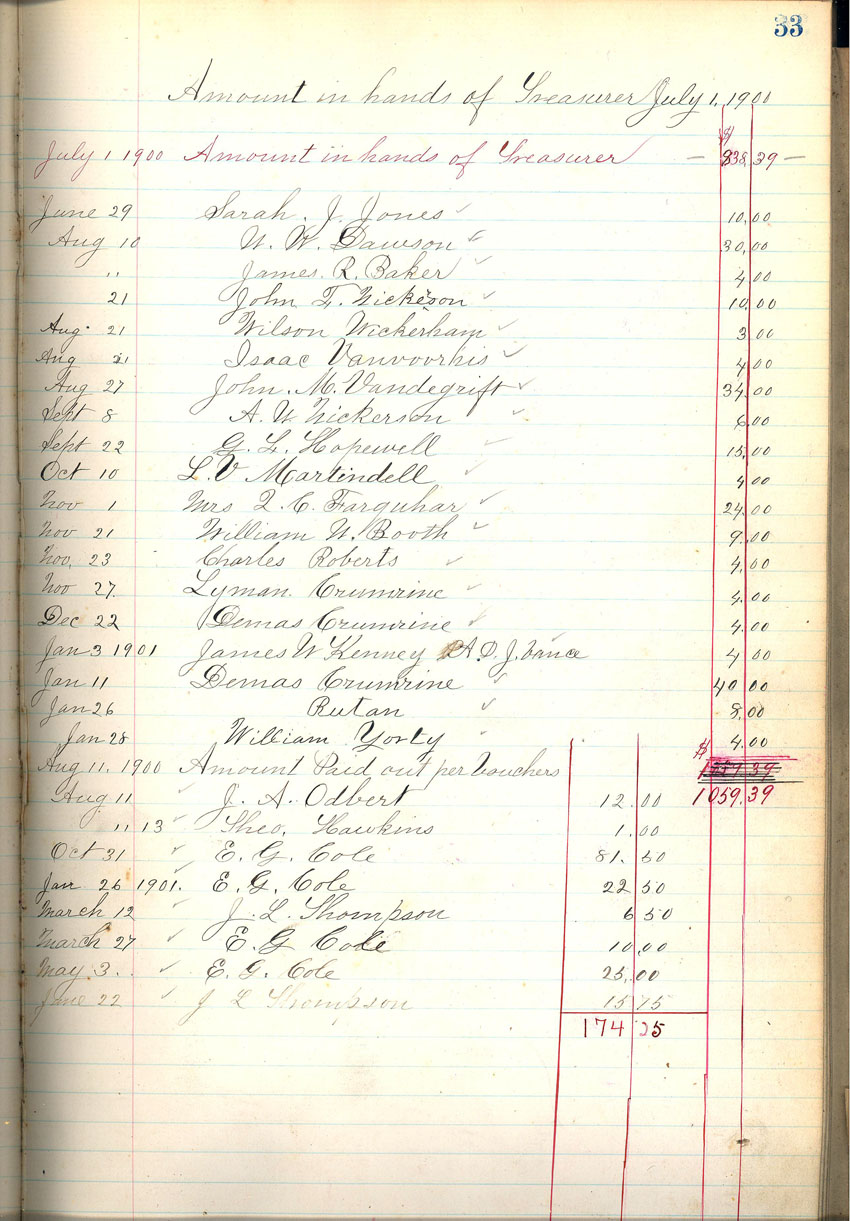 33
Amount in hands of Treasurer July 1, 1900
$
July 1 1900 Amount in hands of Treasurer — 838.39 —
June 29 Sarah. J. Jones ✓ 10.00
Aug 10 W. W. Dawson ✓ 30.00
" James. R. Baker ✓ 4.00
21 John F. Nickeson ✓ 10.00
Aug. 21 Wilson Wickerham ✓ 3 00
Aug 21 Isaac Vanvoorhis ✓ 4.00
Aug 27 John. M. Vandegrift ✓ 34.00
Sept 8 A. W Nickerson ✓ 6.00
Sept 22 G. L. Hopewell ✓ 15.00
Oct 10 L. V Martindell ✓ 4 00
Nov 1 Mrs L. C. Farquhar ✓ 24.00
Nov 21 William W. Booth ✓ 9.00
Nov. 23 Charles Roberts ✓ 4.00
Nov 27. Lyman. Crumrine ✓ 4.00
Dec 22 Demas Crumrine ✓ 4.00
Jan 3 1901 James W Kenney A. D. J. Vance 4 00
Jan 11 Demas Crumrine ✓ 40 00
Jan 26 Rutan ✓ 8.00
Jan 28 William Yorty ✓ 4.00
$
Aug 11. 1900 Amount Paid out per Vouchers
Aug 11 ✓ J. A. Odbert 12.00 1059.39
" 13 ✓ Theo. Hawkins 1.00
Oct 31 ✓ E. G. Cole 81.50
Jan 26 1901. E. G. Cole 22 50
March 12 ✓ J. L. Thompson 6 50
March 27 ✓ E. G Cole 10.00
May 3. ✓ E. G. Cole 25.00
June 22 ✓ J L Thompson 15 75
174 25